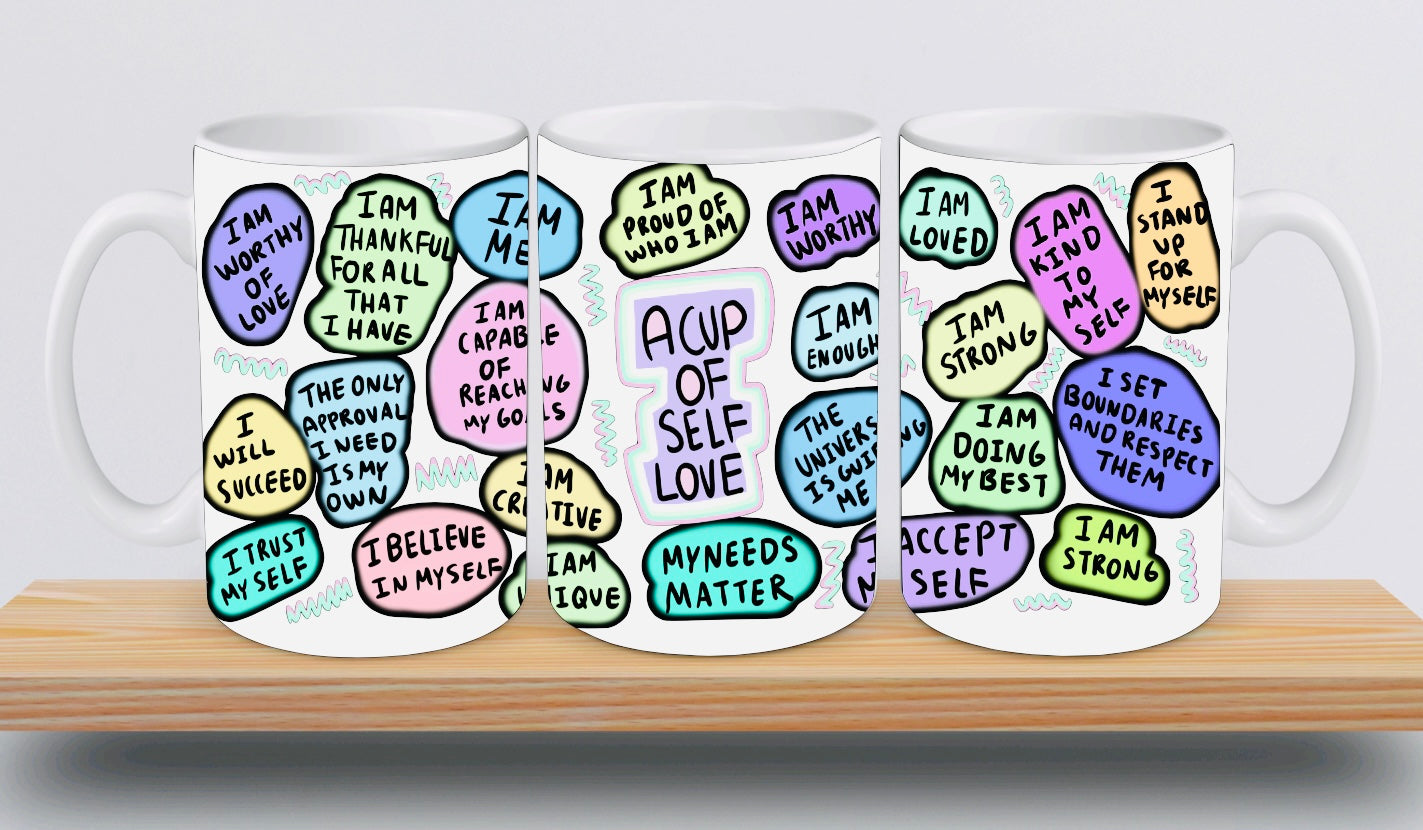 I AM
WORTHY
OF
LOVE
I AM
THANKFUL
FOR ALL
THAT
I HAVE
I AM
ME
I AM
CAPABLE
OF
REACHING
MY GOALS
THE ONLY
APPROVAL
I NEED
IS MY
OWN
I
WILL
SUCCEED
I TRUST
MY SELF
I BELIEVE
IN MYSELF
I AM
CREATIVE
I AM
UNIQUE
I AM
PROUD OF
WHO I AM
A CUP
OF
SELF
LOVE
MY NEEDS
MATTER
I AM
WORTHY
I AM
ENOUGH
THE
UNIVERS
IS GUIDING
ME
I ACCEPT
SELF
I AM
LOVED
I AM
STRONG
I AM
KIND
TO
MY
SELF
I
STAND
UP
FOR
MYSELF
I AM
DOING
MY BEST
I SET
BOUNDARIES
AND RESPECT
THEM
I AM
STRONG